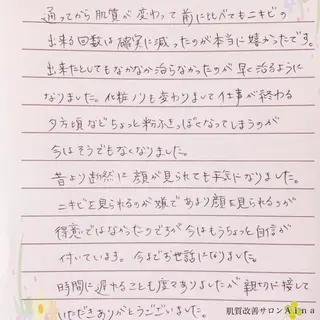 通ってから肌質が変わって前に比べてもニキビの
出来る回数は確実に減ったのが本当に嬉かったです。
出来たとしてもなかなか治らなかったのが早く治るように
なりました。化粧ノリも変わりまして仕事が終わる
夕方頃などちょっと粉ふきっぽくなってしまうのが
今はそうでもなくなりました。
昔より断然に顔が見られても平気になりました。
ニキビを見られるのが嫌であまり顔を見られるのが
得意ではなかったのですが今はもうちょっと自信が
付いています。今までお世話になりました。
時間に遅れることも度々ありましたが親切に接して
いただきありがとうございました。
肌質改善サロンAina